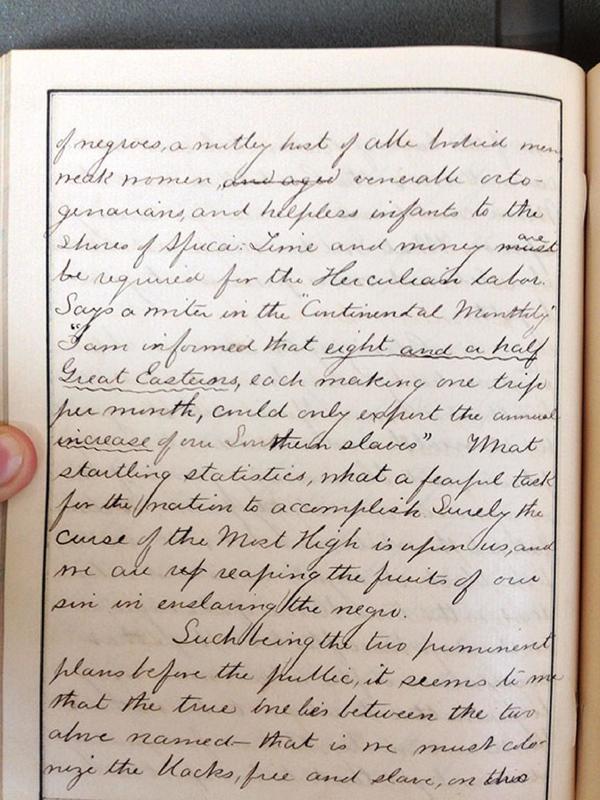 of negroes, a mutley host of able bodied men,
weak women, and aged venerable octo-
genarians, and helpless infants to the
shores of Africa: Time and money must are
be required for the Herculean labor.
Says a writer in the "Continental Monthly"
"I am informed that eight and a half
Great Easterns, each making one trip
per month, could only export the annual
increase of our Southern slaves" What
startling statistics, what a fearful task
for the nation to accomplish. Surely the
curse of the Most High is upon us, and
we are reaping the fruits of our
sin in enslaving the negro.
Such being the two prominent
plans before the public, it seems to me
that the true one lies between the two
above named— that is we must colo-
nize the blacks, free and slave, on